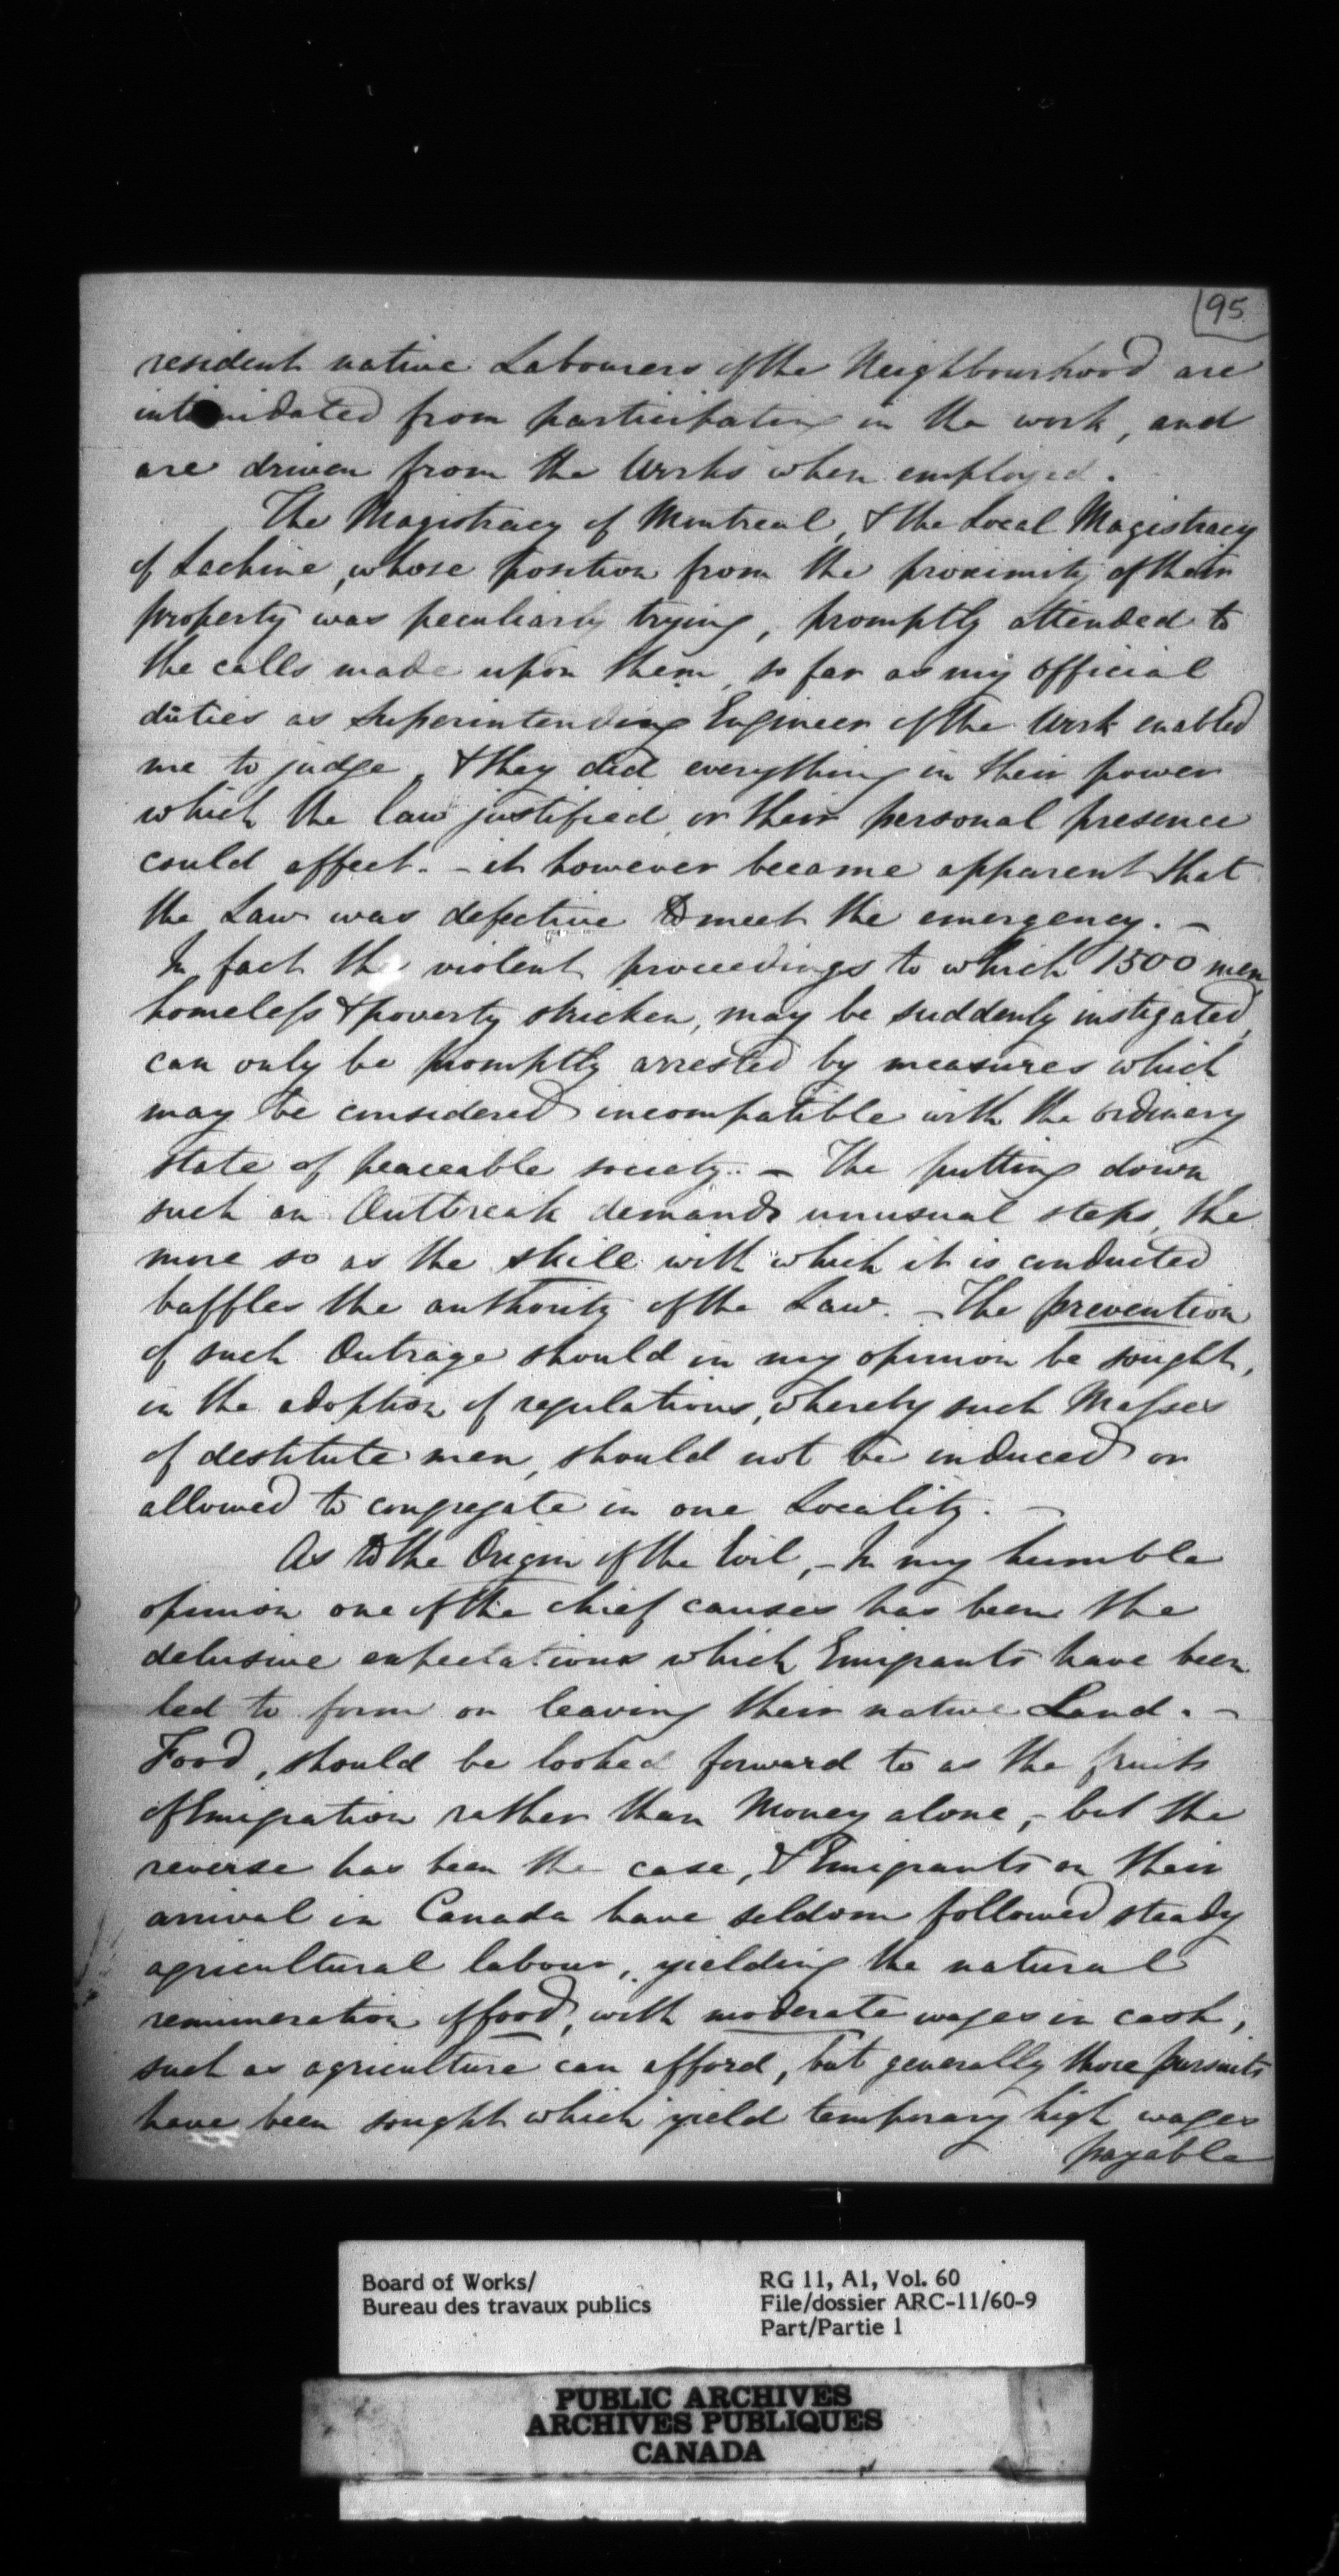 95
resident native Labourers of the Neighbourhood are
intimidated from participating in the work, and
are driven from the Works when employed.
The Magistracy of Montreal, & the Local Magistracy
of Lachine, whose position from the proximity of their
property was peculiarly trying, promptly attended to
the calls made upon them, so far as my official
duties as Superintending Engineer of the Work enabled
me to judge, & they did everything in their power
which the law justified, or their personal presence
could affect. - it however became apparent that
the Law was defective to meet the emergency. -
In fact the violent proceedings to which 1500 men,
homeless & poverty stricken, may be suddenly instigated,
can only be promptly arrested by measures which
may be considered incompatible with the ordinary
state of peaceable society. - The putting down
such an Outbreak demands unusual steps, the
more so as the skill with which it is conducted
baffles the authority of the Law. - The prevention
of such Outrage should in my opinion be sought,
in the adoption of regulations, whereby such Masses
of destitute men, should not be induced or
allowed to congregate in one Locality. -
As to the Origin of the Evil, - In my humble
opinion one of the chief causes has been the
delusive expectations which Emigrants have been
led to form on leaving their native Land. -
Food, should be looked forward to as the fruits
of Emigration rather than Money alone, - but the
reverse has been the case, & Emigrants on their
arrival in Canada have seldom followed steady
agricultural labour, yielding the natural
remuneration of food, with moderate wages in cash,
such as agriculture can afford, but generally those pursuits
have been sought which yield temporary high wages
payable
Board of Works/
Bureau des travaux publics
RG 11, A1, Vol. 60
File/dossier ARC-11/60-9
Part/Partie 1
PUBLIC ARCHIVES
ARCHIVES PUBLIQUES
CANADA